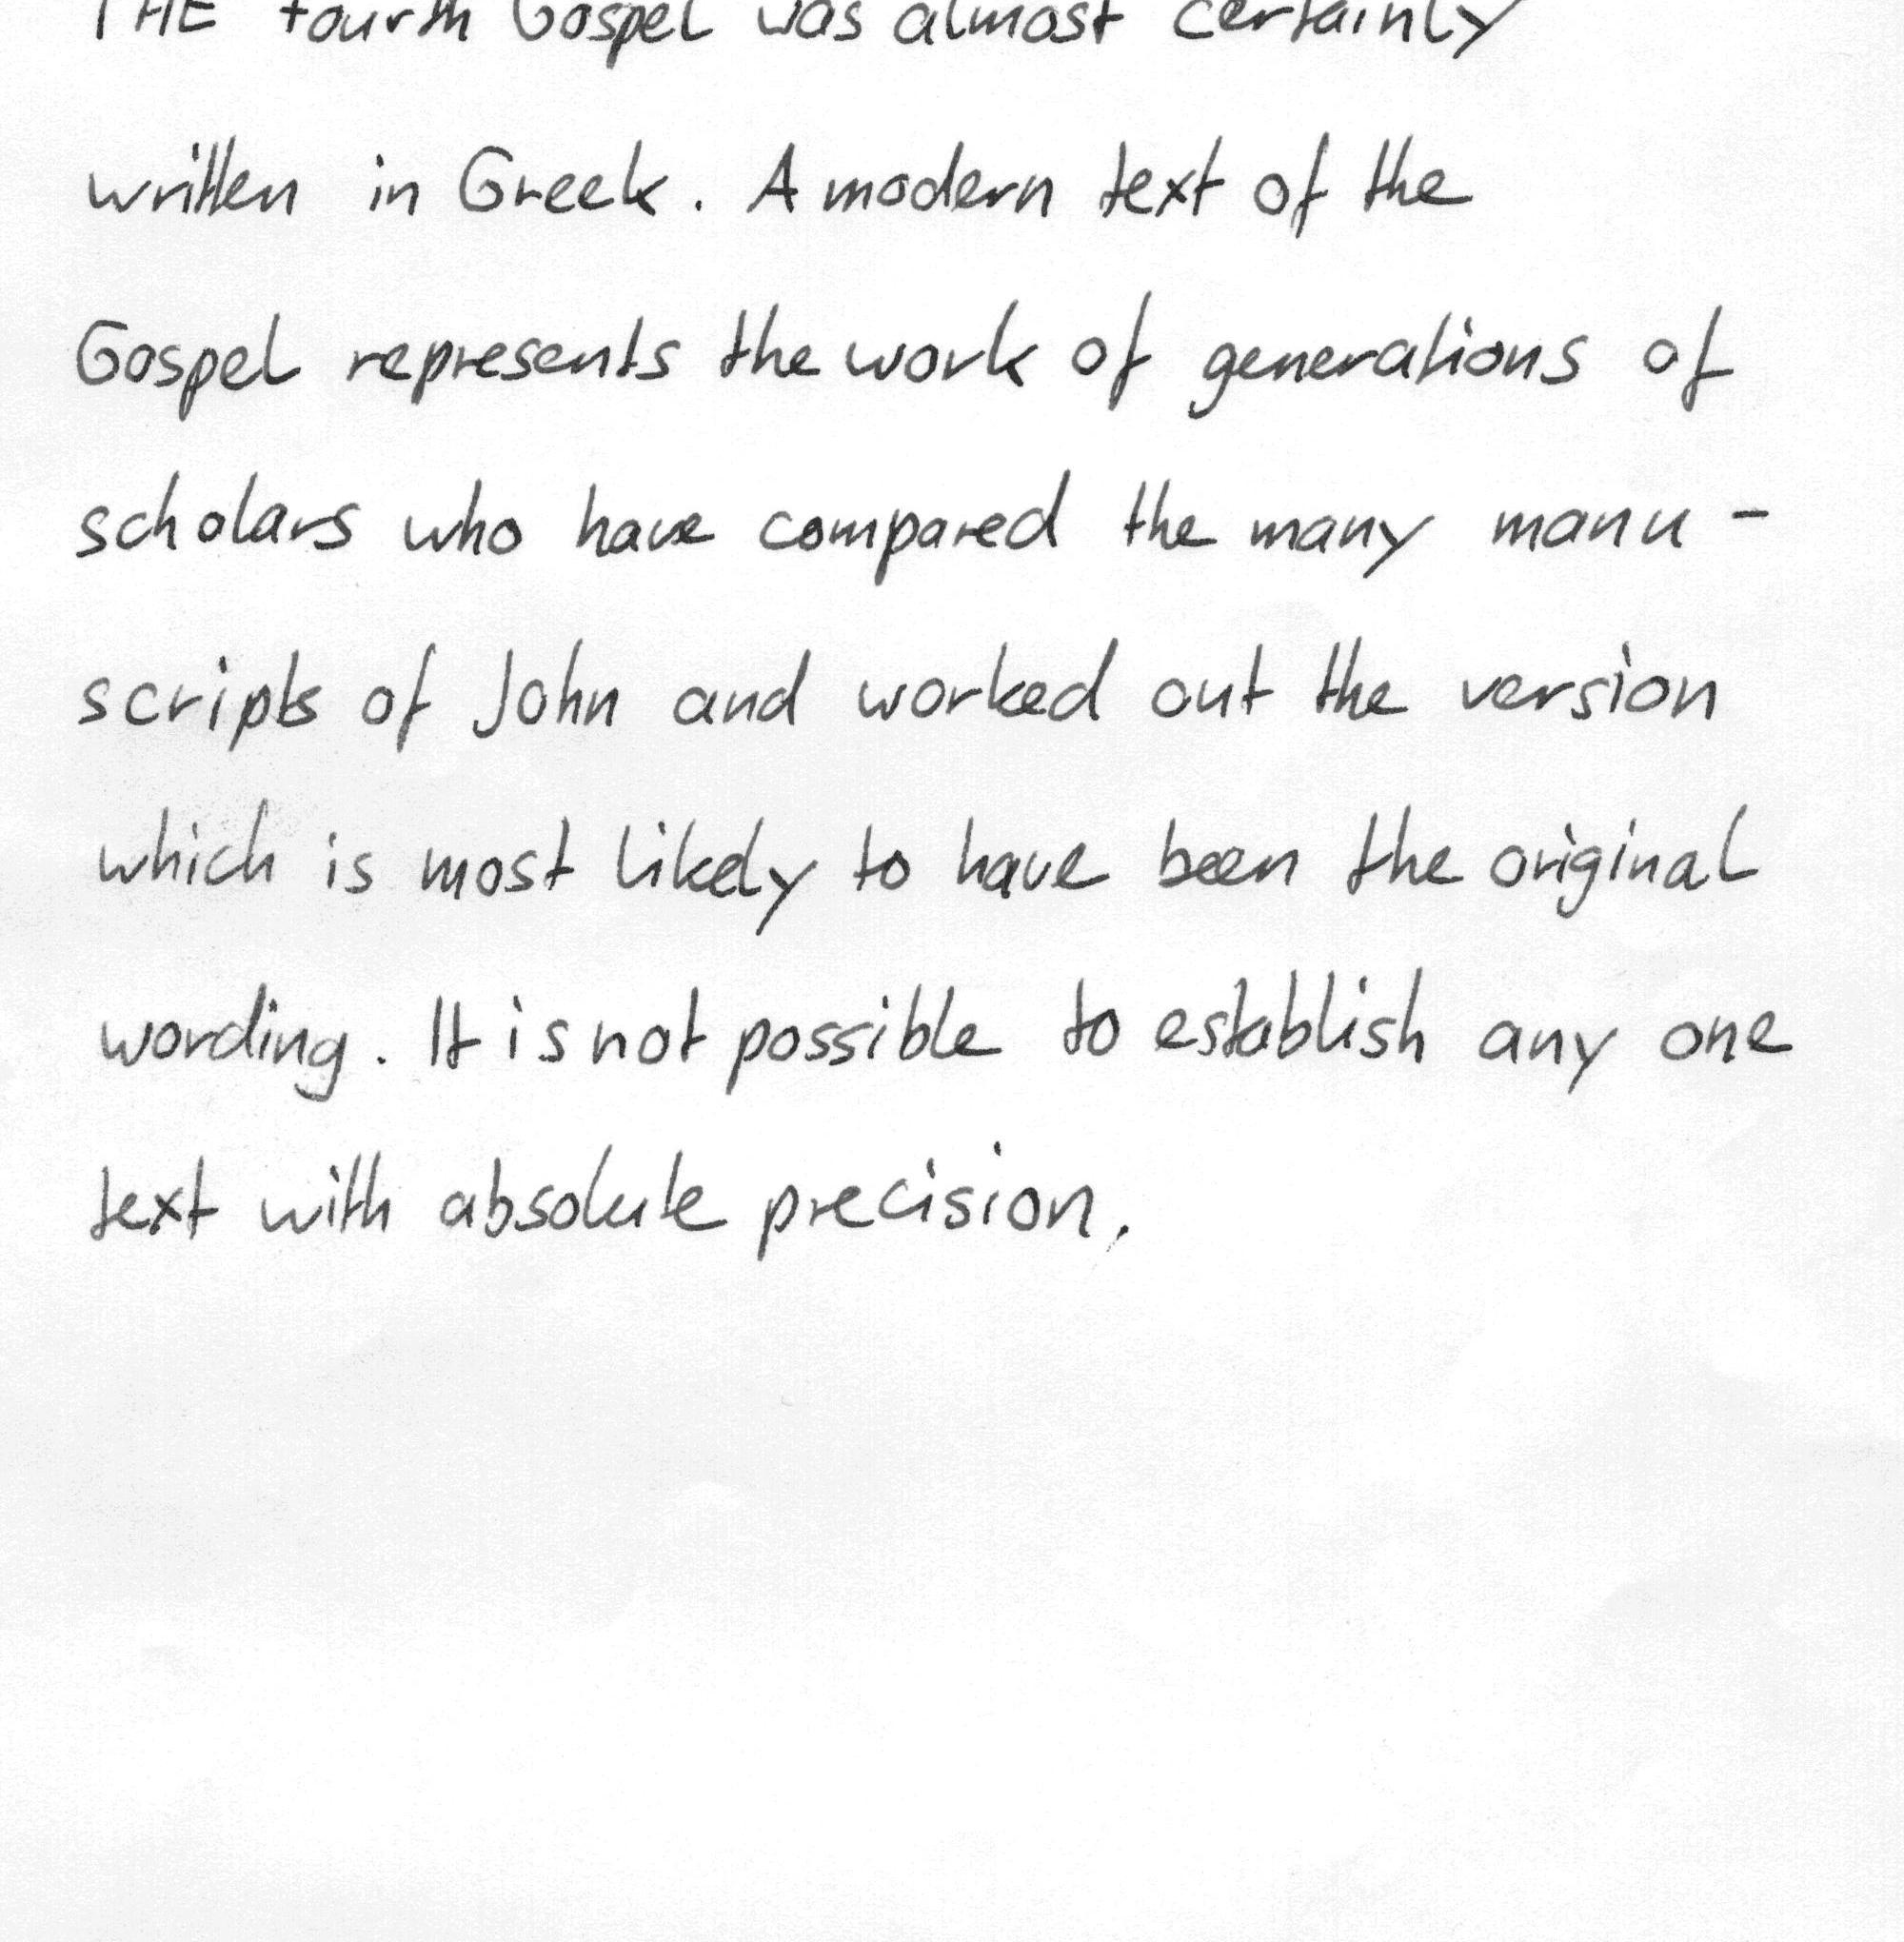 THE fourth Gospel was almost certainly
written in Greek. A modern text of the
Gospel represents the work of generations of
scholars who have compared the many manu-
scripts of John and worked out the version
which is most likely to have been the original
wording. It is not possible to establish any one
text with absolute precision.